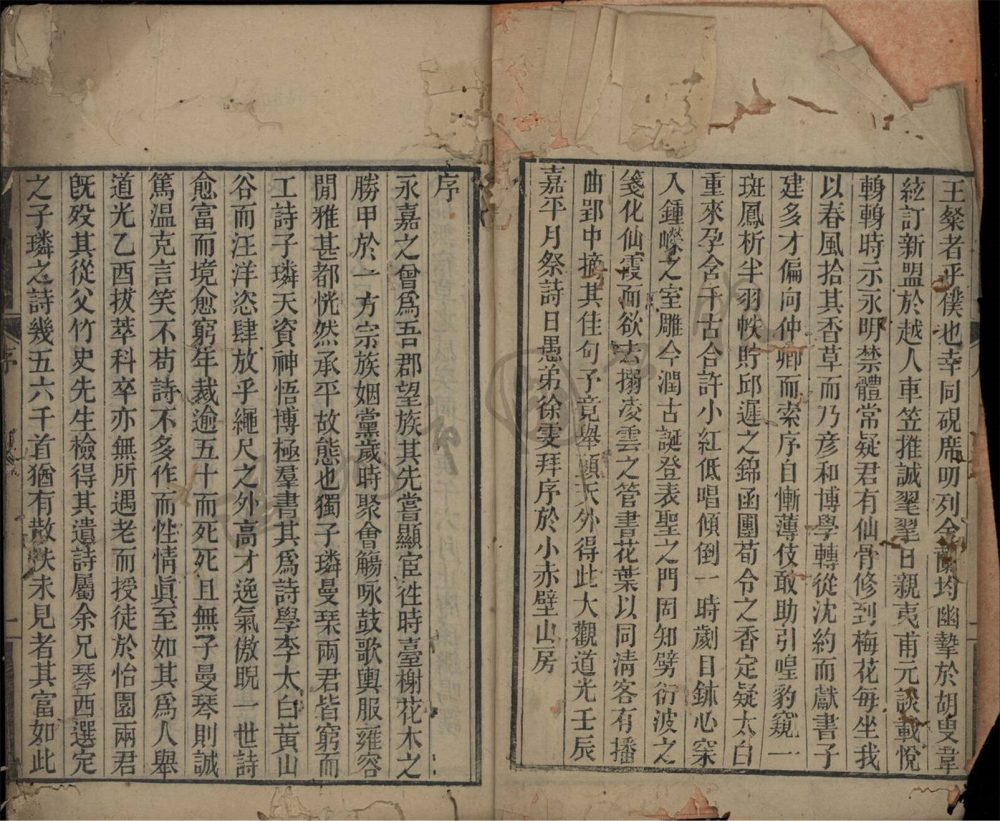 王粲者乎僕也幸同硯席明列金蘭均幽摯於胡叟韋
絃訂新盟於越人車笠推誠翟翟日親夷甫元談載悅
翰翰時示永明禁體常疑君有仙骨修到梅花每坐我
以春風拾其香草而乃彥和博學轉從沈約而獻書子
建多才偏向仲卿而索序自慚薄伎敢助引喤豹窺一
斑鳳析半羽帙貯邱遲之錦函團荀令之香定疑太白
重來孕含千古合許小紅低唱傾倒一時劌目鉥心穾
入鍾嶸之室雕今潤古誕登表聖之門固知劈衍波之
箋化仙霞而欲去搦凌雲之管書花葉以同清客有播
曲郢中摘其佳句予竟舉頭天外得此大觀道光壬辰
嘉平月祭詩日愚弟徐雯拜序於小赤壁山房
序
永嘉之曾爲吾郡望族其先嘗顯宦徃時臺榭花木之
勝甲於一方宗族姻黨歲時聚會觴咏鼓歌輿服雍容
閒雅甚都恍然承平故態也獨子璘曼琹兩君皆窮而
工詩子璘天資神悟博極羣書其爲詩學李太白黃山
谷而汪洋恣肆放乎繩尺之外高才逸氣傲睨一世詩
愈富而境愈窮年裁逾五十而死死且無子曼琴則誠
篤溫克言笑不苟詩不多作而性情眞至如其爲人舉
道光乙酉拔萃科卒亦無所遇老而授徒於怡園兩君
旣歿其從父竹史先生檢得其遺詩屬余兄琴西選定
之子璘之詩幾五六千首猶有散佚未見者其富如此
序
一